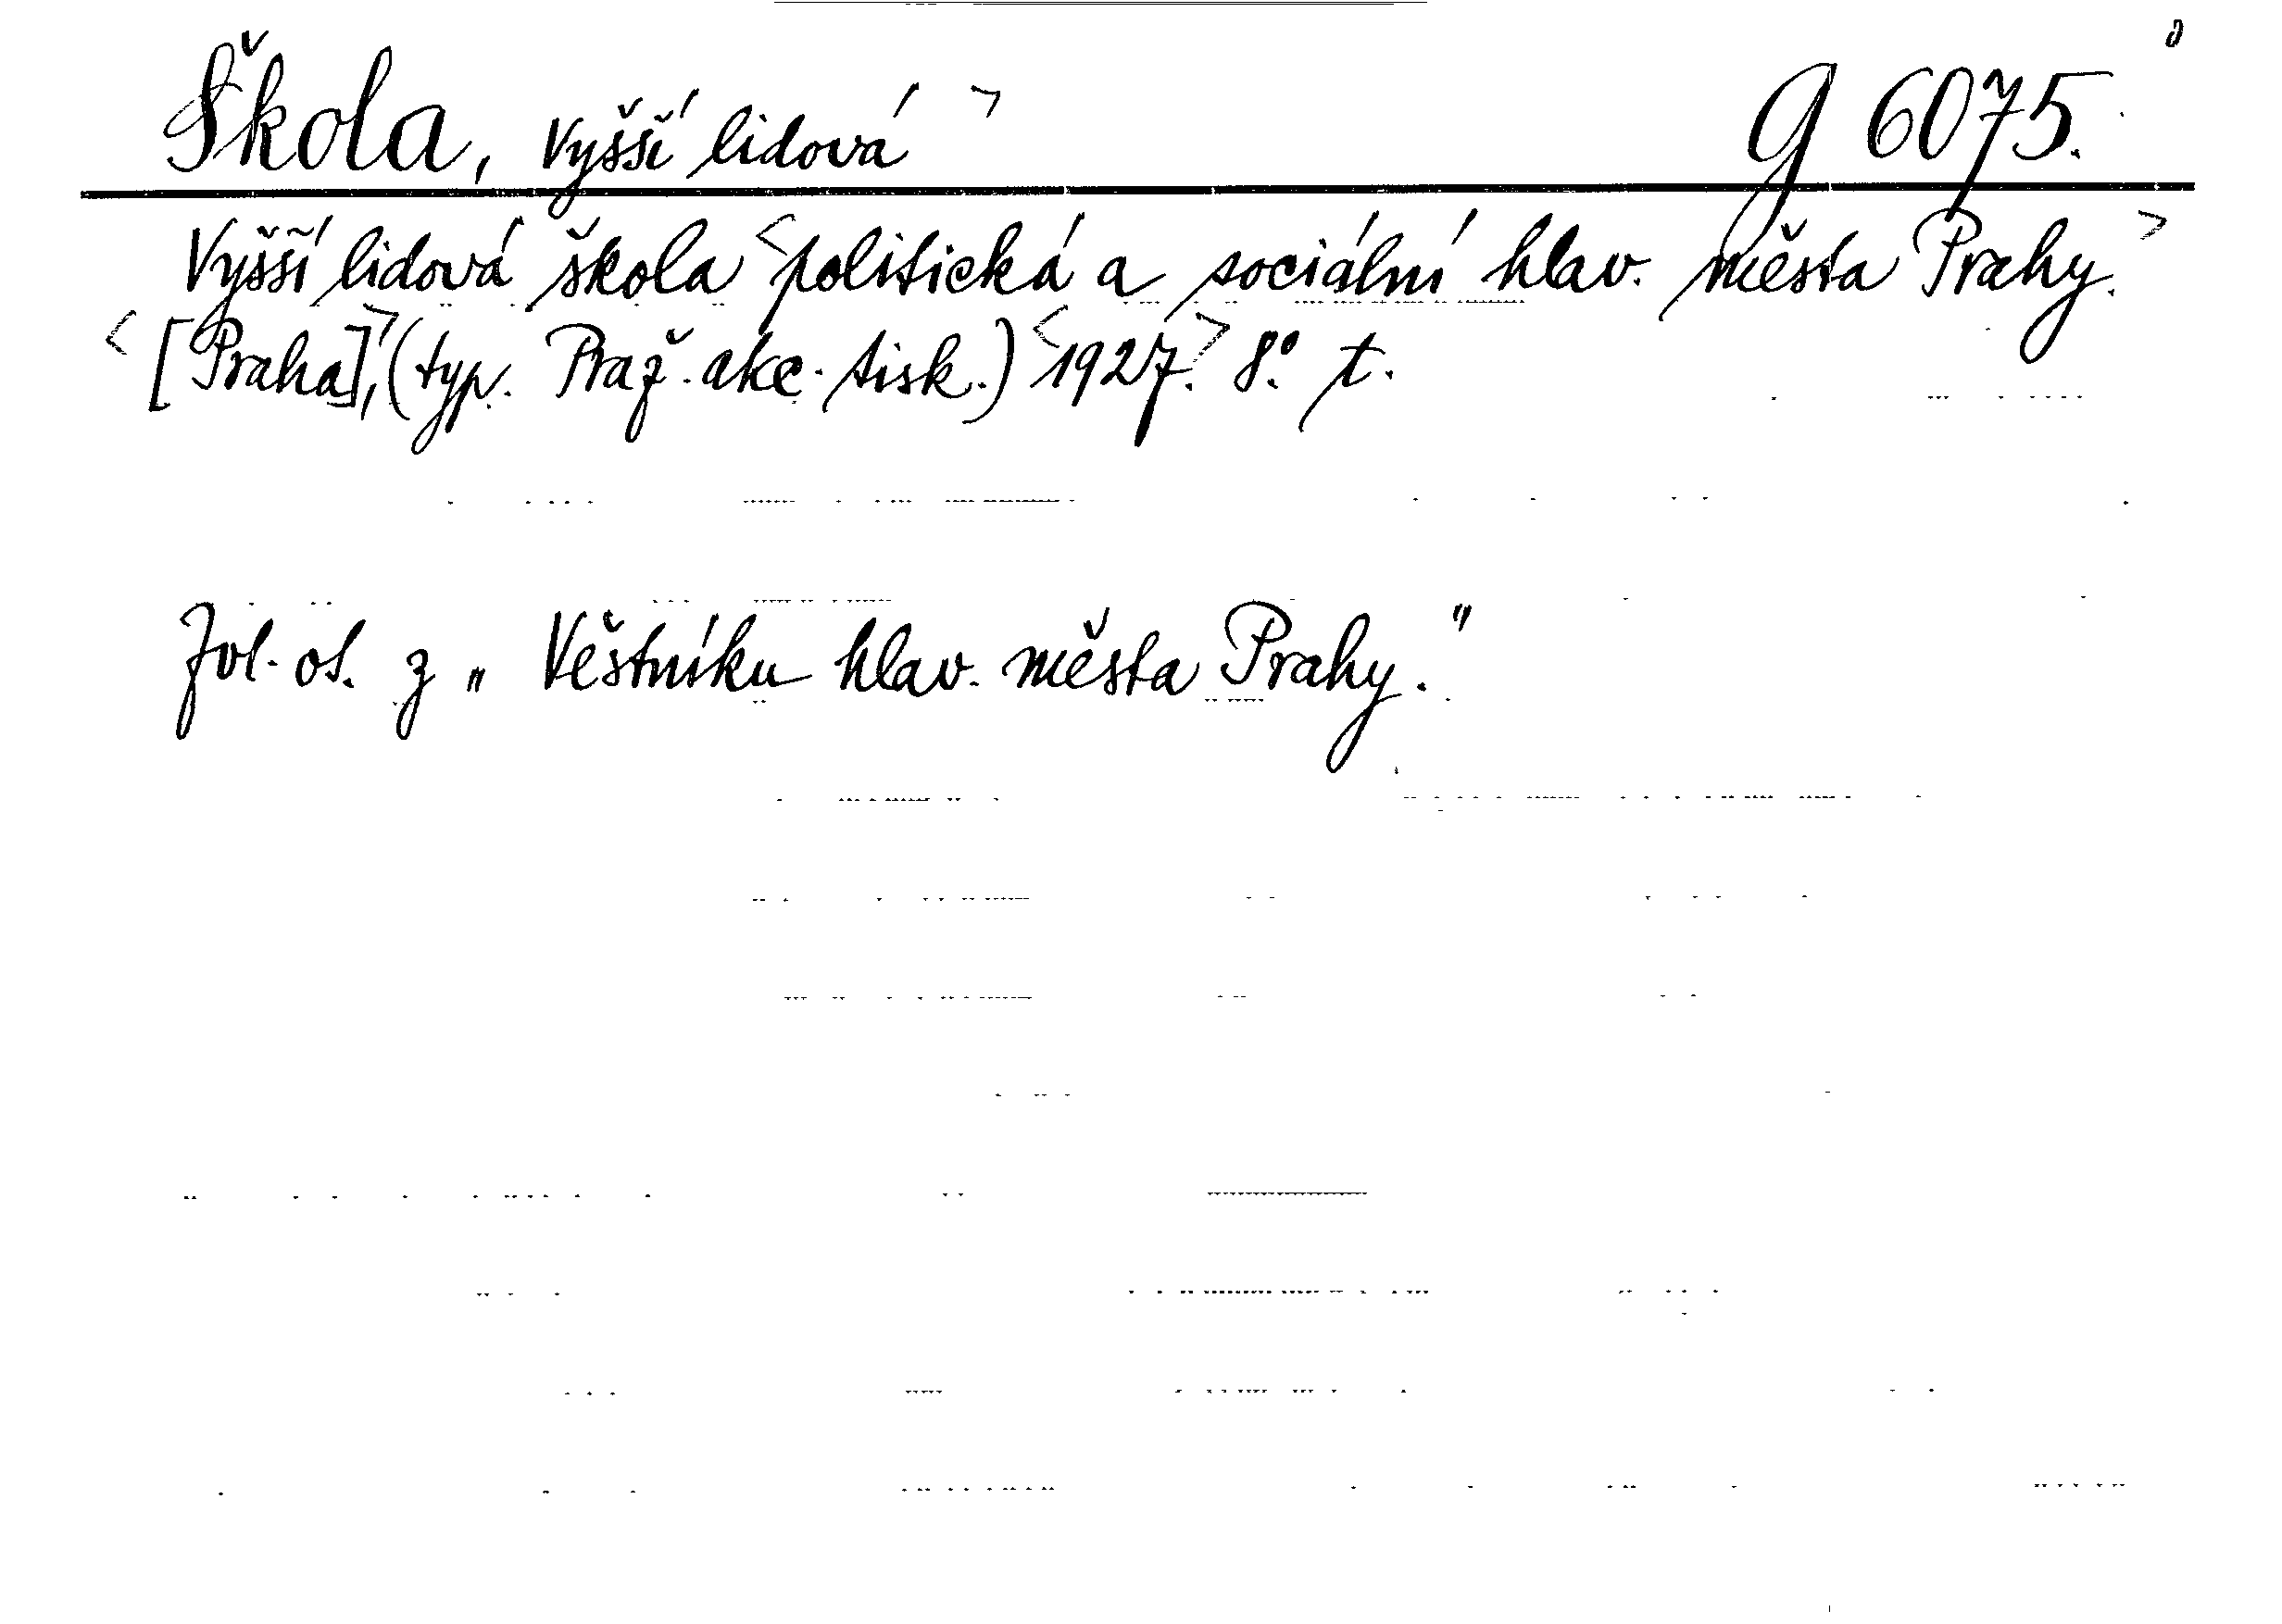 Škola, vyšší lidová > g 6075.
Vyšší lidová škola <politická a sociální hlav. města Prahy.>
<[Praha],> (typ. Praž. akc. tisk.) <1927.> 8º. t.
Zvl. ot. z „Věstníku hlav. města Prahy."